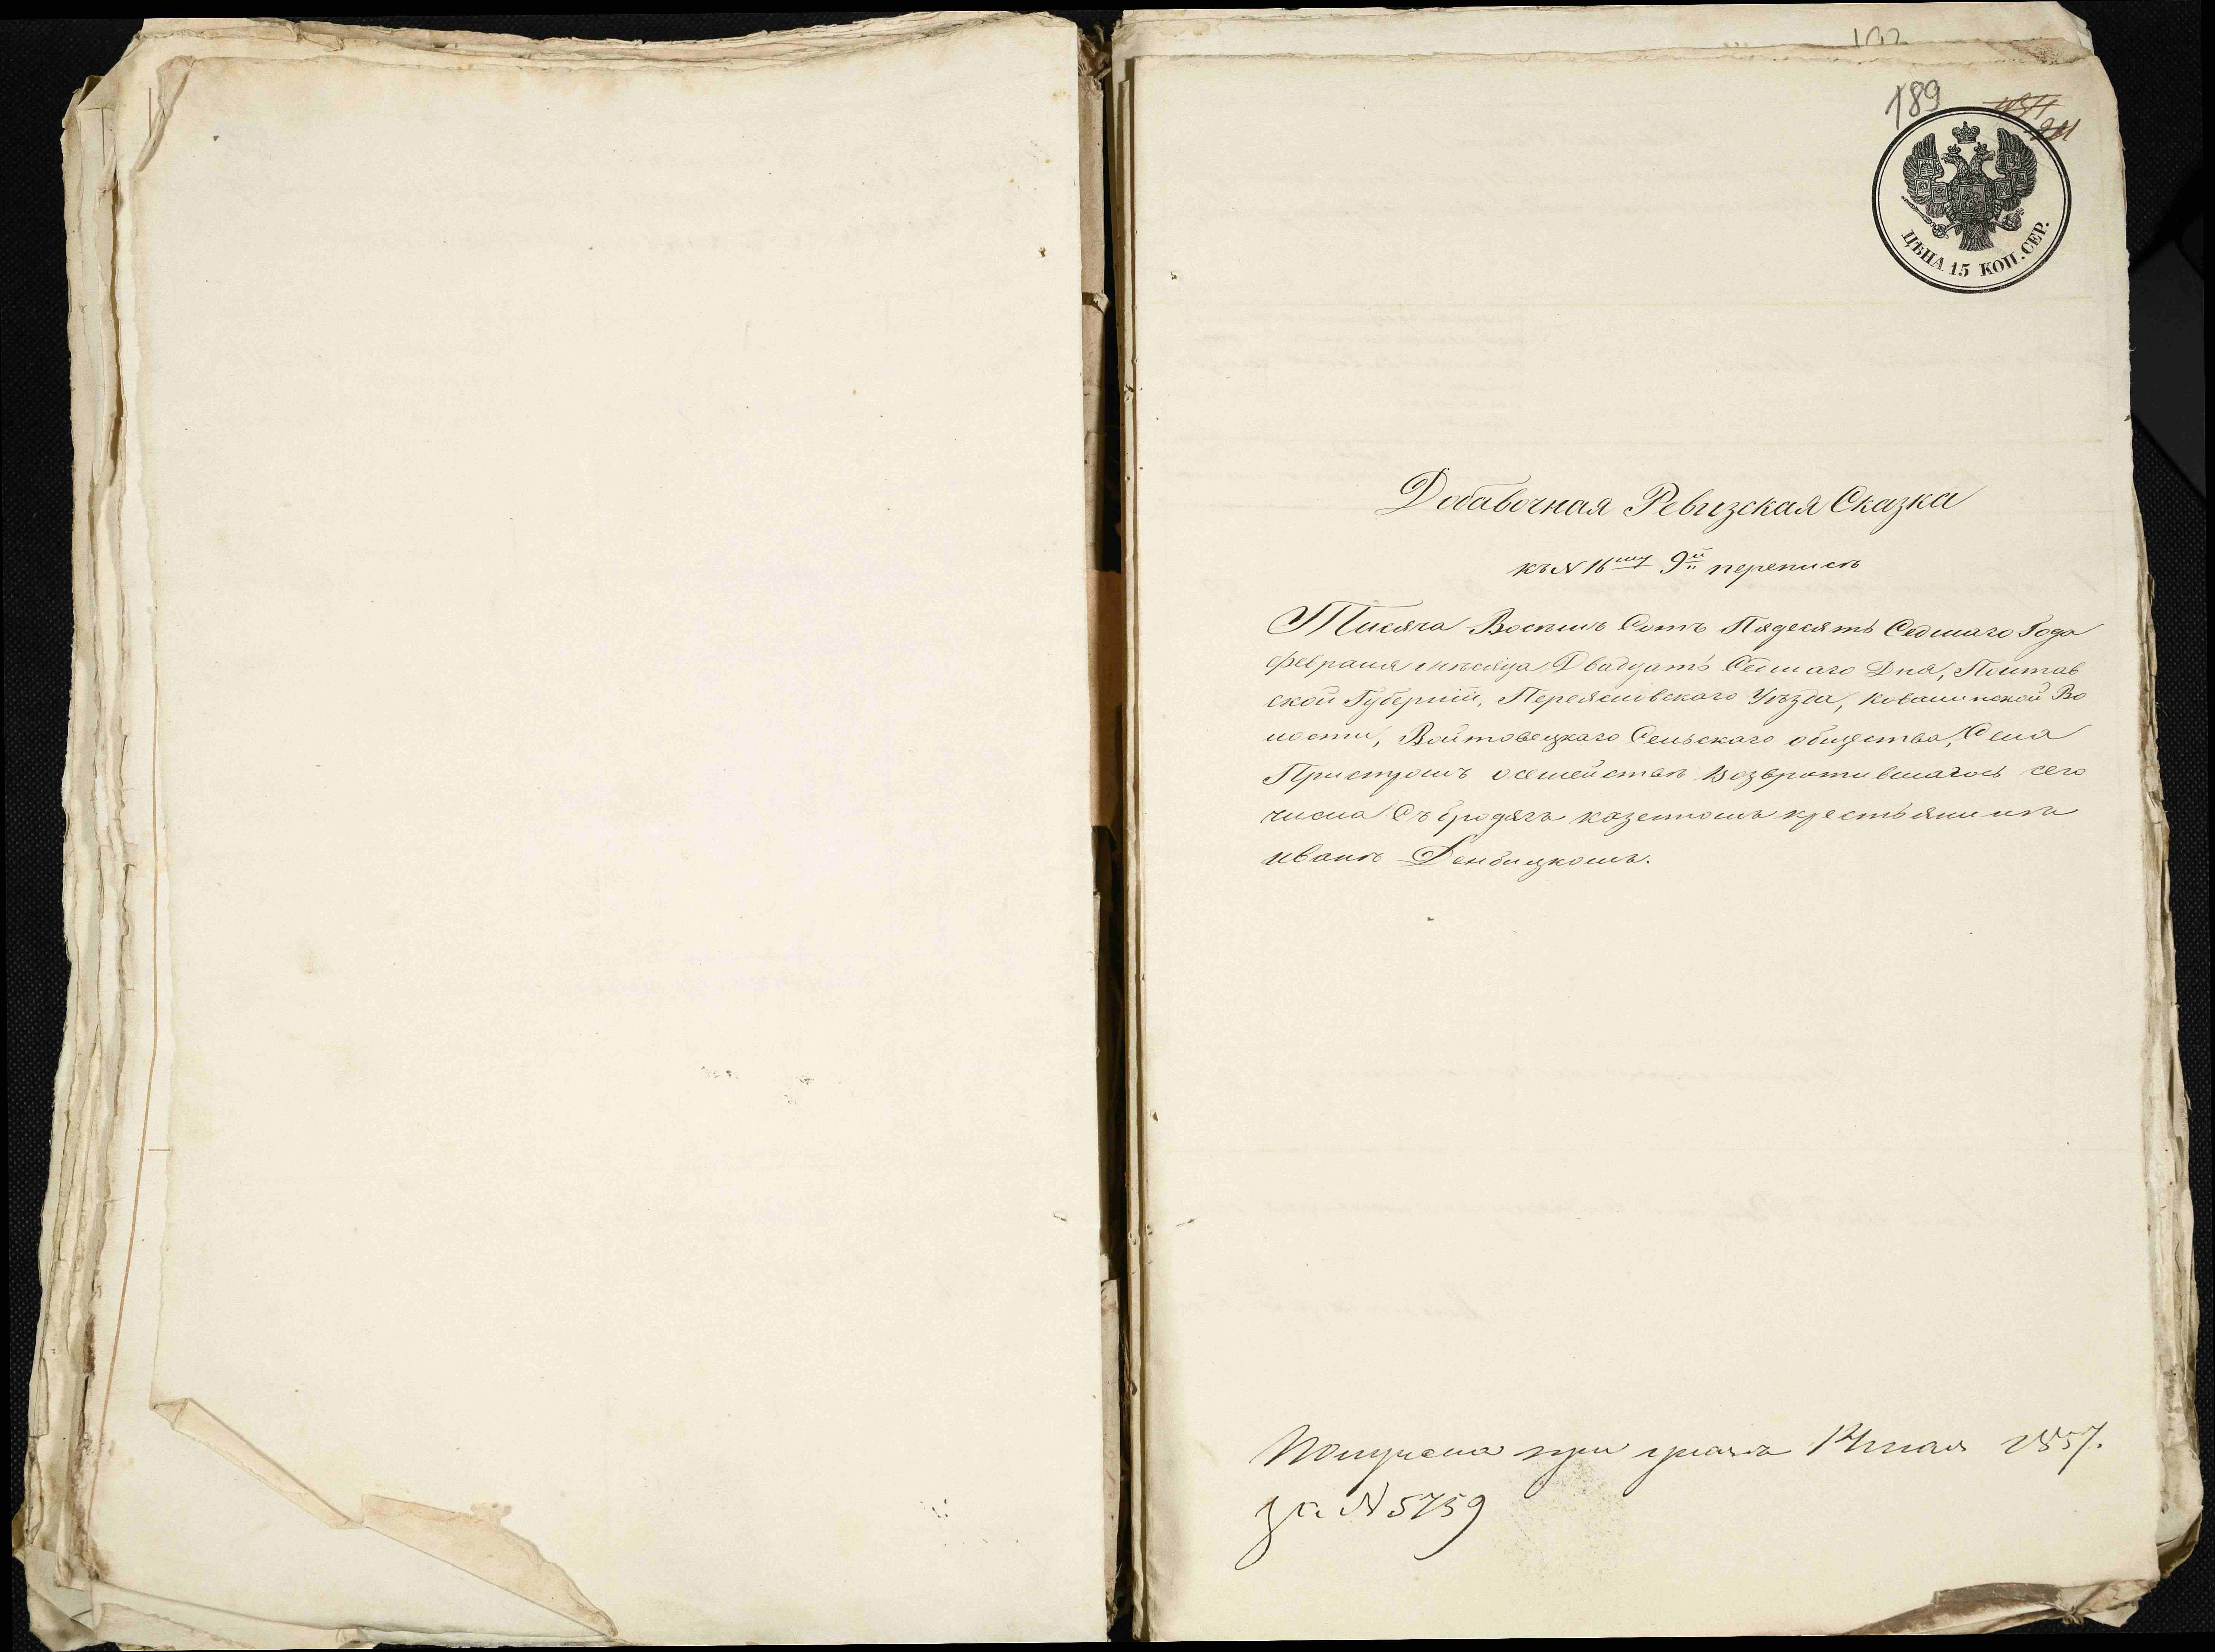 189
ЦѢНА 15 КОП. СЕР.
Добавочная Ревизская Сказка
къ N 16му 9й переписѣ
Тисяча Восемъ Сотъ Пядесятъ Седмаго Года
февраля мѣсяца Двадцатъ Седмаго Дня, Полтав
ской Губерніи, Переяславского Уѣзда, Ковалинской Во
лости, Войтовецкаго Сельскаго общества, Села
Пристромъ осемействѣ Возвротившагось сего
числа Съ бродягъ казенномъ крестьянинѣ
иванѣ Денбицкомъ.
Получена при 14 мая 1857.
за N 5759